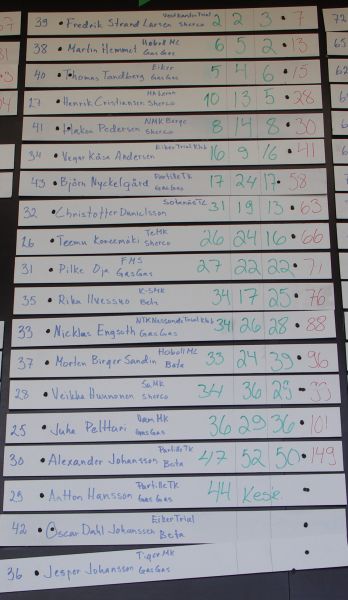 39 • Fredrik Strand Larsen Sherco 2 2 3 • 7
38 • Martin Hemmet Hobøl MC GasGas 6 5 2 • 13
40 • Thomas Tandberg Eiker GasGas 5 4 6 • 15
27 • Henrik Cristiansen Sherco 10 13 5 • 28
41 • Håkon Pedersen NMK Berge Sherco 8 14 8 • 30
34 • Vegar Kåse Andersen Eiker Trial Klub 16 9 16 • 41
43 • Björn Nyckelgård Partille TK GasGas 17 24 17 • 58
32 • Christoffer Danielsson 31 19 13 • 63
26 • Teemu Koncemäki TeMK Sherco 26 24 16 • 66
31 • Pilke Oja FMS GasGas 27 22 22 • 71
35 • Riku Ilvessuo K-SMK Beta 34 17 25 • 76
33 • Nicklas Engseth NTK Nässundi Trial Klub GasGas 34 26 28 • 88
37 • Morten Birger Sandin Hobøl MC Beta 33 24 39 • 96
28 • Veikka Huunonen SaMK Sherco 34 36 29 • 99
25 • Juha Pelttari VamMK GasGas 36 29 36 • 101
30 • Alexander Johansson Partille TK Beta 47 52 50 • 149
29 • Anton Hansson Partille TK GasGas 44 Kesk. •
42 • Oscar Dahl Johanssen Eiker Trial Beta •
36 • Jesper Johansson Tiger MK GasGas •